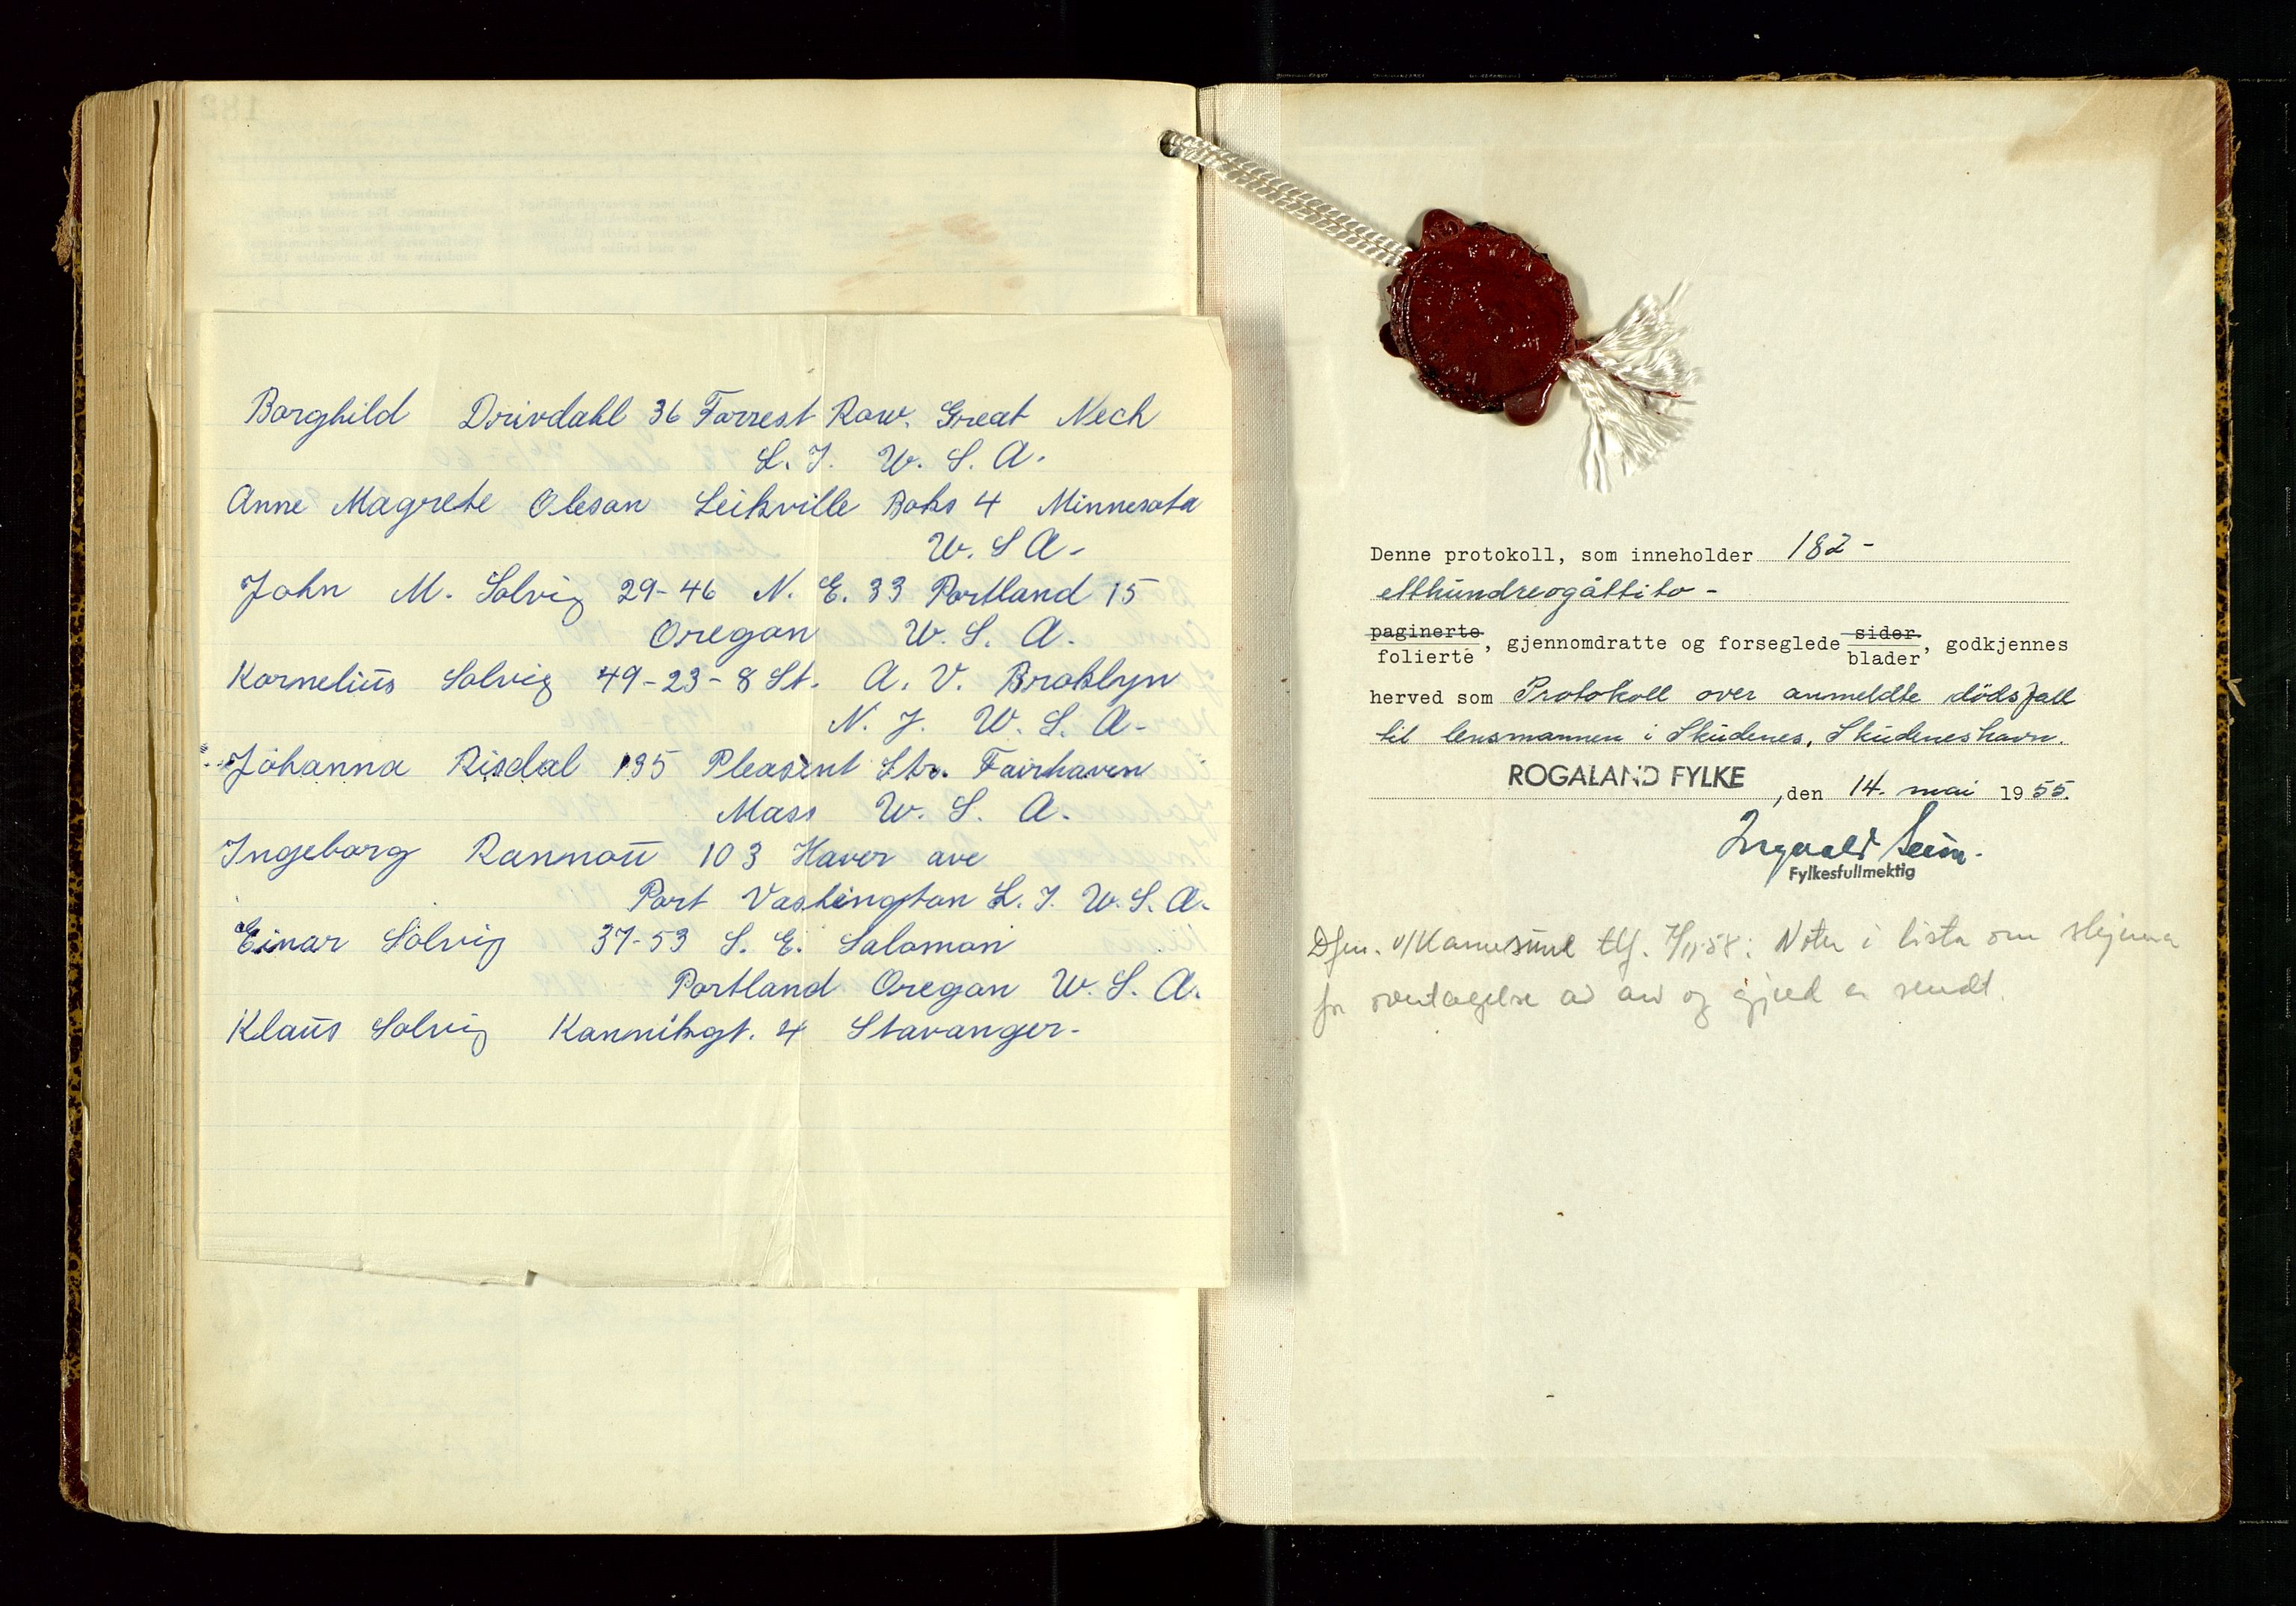 Borghild Drivdahl 36 Forrest Row. Great Nech
L. I. U. S. A.
Anne Magrete Oleson Leikville Boks 4 Minnesota
U. S A.
John M. Solvig 29-46 N. E. 33 Portland 15
Oregon U. S. A.
Kornelius Solvig 49-23-8 St. A. V. Broklyn
N. J. U. S. A.
Johanna Risdal 135 Pleasent Str. Fairhaven
Mass U. S. A.
Ingeborg Rannou 103 Haver ave
Port Vashington L. I. U. S. A.
Einar Solvig 37-53 S. E. Salomon
Portland Oregon U. S. A.
Klaus Solvig Kannikgt. 4 Stavanger.
Denne protokoll, som inneholder 182 -
etthundreogåttito -
paginerte
folierte, gjennomdratte og forseglede sider.
blader, godkjennes
herved som Protokoll over anmeldte dödsfall
til lensmannen i Skudenes, Skudeneshavn.
ROGALAND FYLKE, den 14. mai 1955.
Ingvald Seim.
Fylkesfullmektig
v/Karmsund tlf. : Noter i lista om
for overtagelse av arv og gjeld er sendt.